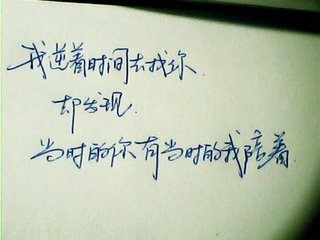 我逆着时间去找你
却发现
当时的你有当时的我陪着